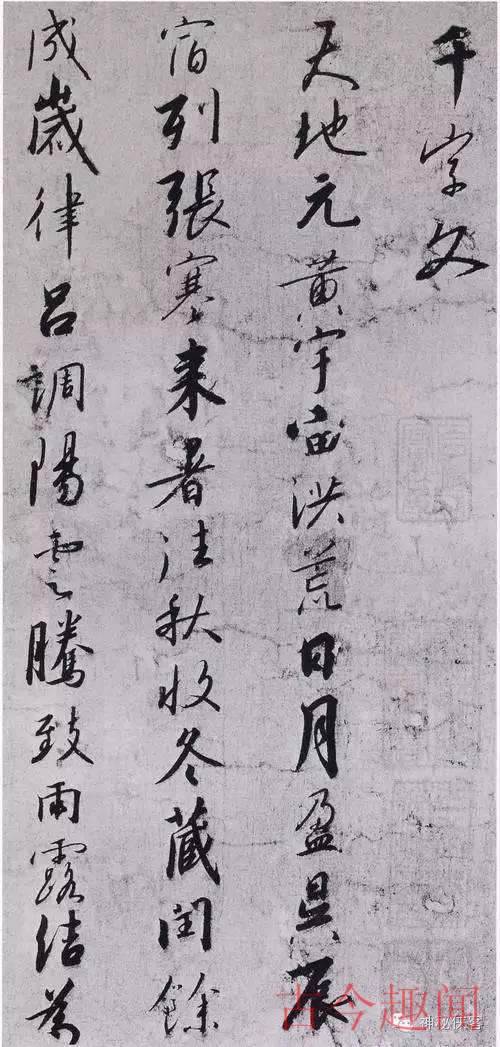 千字文
天地元黄宇宙洪荒日月盈昃辰
宿列張寒来暑往秋收冬藏閏餘
成歲律吕調陽雲騰致雨露结為
古今趣闻
神秘侠客